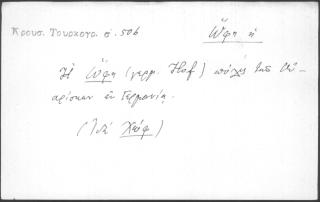 Κρουσ. Τουρκογρ. σ. 506
Ὤφη ἡ
Ἡ Ὤφη (γερμ. Hof) πόλις τῆς Βα-
αρίας ἐν Γερμανίᾳ.
(Ἰδὲ Χώφ)